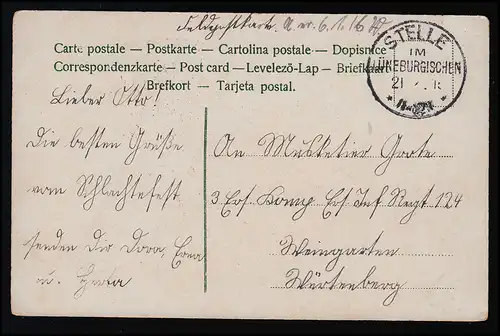 Feldpostkarte A nr. 6. 1. 16
Carte postale — Postkarte — Cartolina postale — Dopisnice
Correspondenzkarte — Post card — Levelezõ-Lap — Briefkaart
Brefkort — Tarjeta postal.
STELLE
IM
LÜNEBURGISCHEN
21
11-12V
Lieber Otto!
Die besten Grüße
vom Schlachtefest
senden Dir Dora, Erna
u. Herta
An Musketier Grote
3 Ers. Komp Ers. Inf Regt 124
Weingarten
Würtenberg